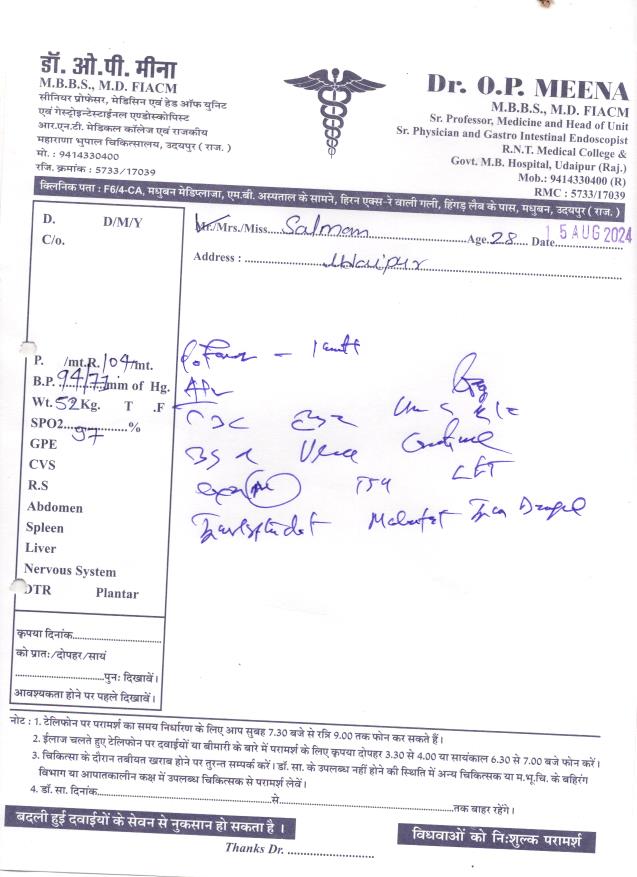 डॉ. ओ.पी. मीना
M.B.B.S., M.D. FIACM
सीनियर प्रोफेसर, मेडिसिन एवं हेड ऑफ युनिट
एवं गेस्ट्रोइन्टेस्टाईनल एण्डोस्कोपिस्ट
आर.एन.टी. मेडिकल कॉलेज एवं राजकीय
महाराणा भुपाल चिकित्सालय, उदयपुर ( राज. )
मो. : 9414330400
रजि. क्रमांक : 5733/17039
Dr. O.P. MEENA
M.B.B.S., M.D. FIACM
Sr. Professor, Medicine and Head of Unit
Sr. Physician and Gastro Intestinal Endoscopist
R.N.T. Medical College &
Govt. M.B. Hospital, Udaipur (Raj.)
Mob.: 9414330400 (R)
RMC : 5733/17039
क्लिनिक पता : F6/4-CA, मधुबन मेडिप्लाजा, एम.बी. अस्पताल के सामने, हिरन एक्स-रे वाली गली, हिंगड़ लैब के पास, मधुबन, उदयपुर ( राज. )
Mr./Mrs./Miss....Salman....Age.28... Date 15 AUG 2024
Address : ....Udaipur....
D. D/M/Y
C/o.
P. /mt.R. 104/mt.
B.P. 94/77 mm of Hg.
Wt. 52 Kg. T .F
SPO2....97....%
GPE
CVS
R.S
Abdomen
Spleen
Liver
Nervous System
DTR Plantar
CBC ESR
Urea
LFT
कृपया दिनांक....
को प्रातः/दोपहर/सायं
....पुनः दिखावें।
आवश्यकता होने पर पहले दिखावें।
नोट : 1. टेलिफोन पर परामर्श का समय निर्धारण के लिए आप सुबह 7.30 बजे से रात्रि 9.00 तक फोन कर सकते हैं।
2. ईलाज चलते हुए टेलिफोन पर दवाईयों या बीमारी के बारे में परामर्श के लिए कृपया दोपहर 3.30 से 4.00 या सायंकाल 6.30 से 7.00 बजे फोन करें।
3. चिकित्सा के दौरान तबीयत खराब होने पर तुरन्त सम्पर्क करें। डॉ. सा. के उपलब्ध नहीं होने की स्थिति में अन्य चिकित्सक या म.भू.चि. के बहिरंग
विभाग या आपातकालीन कक्ष में उपलब्ध चिकित्सक से परामर्श लेवें।
4. डॉ. सा. दिनांक....से....तक बाहर रहेंगे।
बदली हुई दवाईयों के सेवन से नुकसान हो सकता है।
विधवाओं को निःशुल्क परामर्श
Thanks Dr. ....